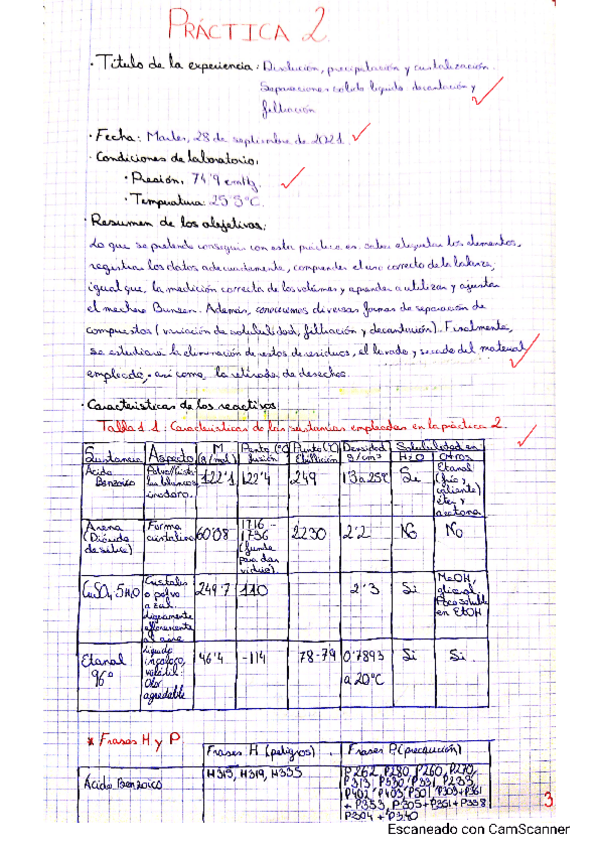 PRÁCTICA 2.
· Título de la experiencia: Disolución, precipitación y cristalización.
Separaciones sólido líquido: decantación y
filtración
· Fecha: Martes, 28 de septiembre de 2021
· Condiciones de laboratorio:
· Presión: 74'9 cmHg.
· Temperatura: 25'3°C.
· Resumen de los objetivos:
Lo que se pretende conseguir con esta práctica es: saber etiquetar los elementos,
registrar los datos adecuadamente, comprender el uso correcto de la balanza,
igual que, la medición correcta de los volúmenes y aprender a utilizar y ajustar
el mechero Bunsen. Además, conoceremos diversas formas de separación de
compuestos (variación de solubilidad, filtración y decantación). Finalmente,
se estudiará la eliminación de estos residuos, el lavado y secado del material
empleado, así como, la retirada de desechos.
· Características de los reactivos
Tabla 1.1: Características de las sustancias empleadas en la práctica 2.
Sustancia Aspecto M (g/mol) Punto (°C) fusión Punto (°C) Ebullición Densidad g/cm3 Solubilidad en
H2O Otros
Ácido Benzoico inodoro. 122'1 122'4 249 1'3 a 25°C Si Etanol (frío y caliente) éter y acetona
Arena (Dióxido de silicio) Forma cristalina 60'08 1716-1736 (funde para dar vidrio). 2230 2'2 No No
CuSO4·5H2O Cristales o polvo azul. ligeramente eflorescente al aire 249'7 110 2'3 Si MeOH, glicerol. Poco soluble en EtOH
Etanol 96° Líquido incoloro, volátil. Olor agradable 46'4 -114 78-79 0'7893 a 20°C Si Si
* Frases H y P
Frases H (peligros) Frases P (precaución)
Ácido Benzoico H315, H319, H335 P262, P280, P260, P270,
P402, P403, P501,
P305+P351+P338
P304 + P340
3
Escaneado con CamScanner